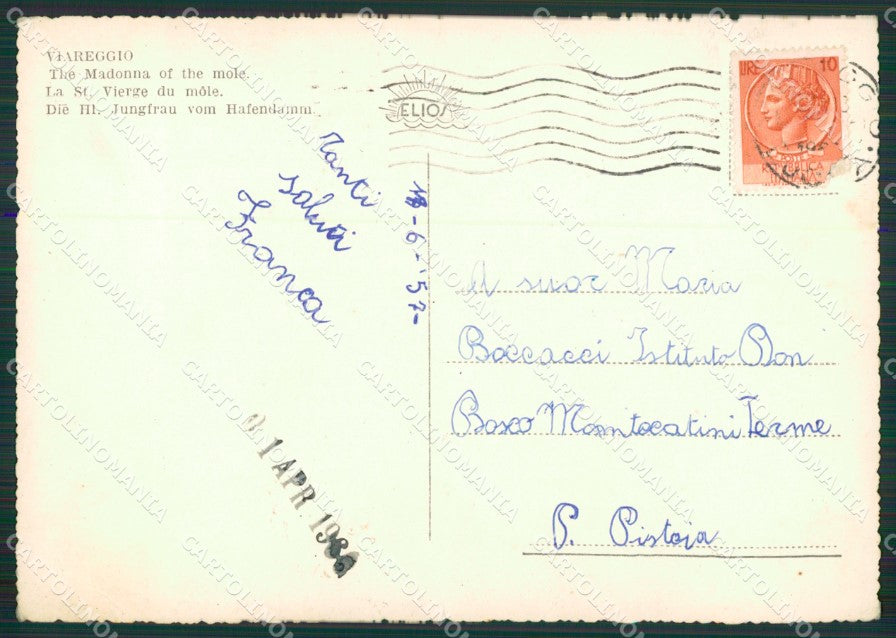 VIAREGGIO
The Madonna of the mole.
La St. Vierge du môle.
Die Hl. Jungfrau vom Hafendamm.
ELIOS
LIRE 10
Tanti
saluti
Franca
-6-'57-
A suor Maria
Boccacci Istituto Don
Bosco Montecatini Terme
P. Pistoja
1 APR 196
CARTOLINOMANIA